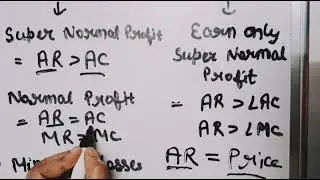 Super Normal Profit
= AR > AC
Normal Profit
= AR = AC
MR = MC
Earn only
Super Normal
Profit
= AR > LAC
AR > LMC
AR = Price